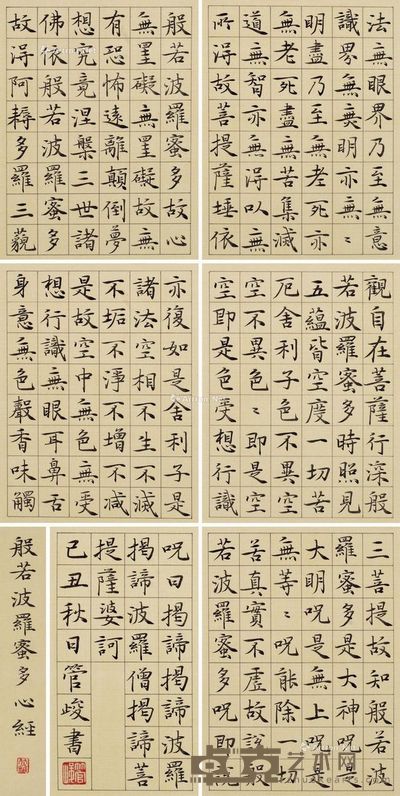 般若波羅蜜多心經
觀自在菩薩行深般
若波羅蜜多時照見
五蘊皆空度一切苦
厄舍利子色不異空
空不異色〻即是空
空即是色受想行識
亦復如是舍利子是
諸法空相不生不滅
不垢不淨不增不減
是故空中無色無受
想行識無眼耳鼻舌
身意無色聲香味觸
法無眼界乃至無意
識界無無明亦無〻
明盡乃至無老死亦
無老死盡無苦集滅
道無智亦無得以無
所得故菩提薩埵依
般若波羅蜜多故心
無罣礙無罣礙故無
有恐怖遠離顛倒夢
想究竟涅槃三世諸
佛依般若波羅蜜多
故得阿耨多羅三藐
三菩提故知般若波
羅蜜多是大神呪是
大明呪是無上呪是
無等〻呪能除一切
苦真實不虛故說般
若波羅蜜多呪即說
呪曰揭諦揭諦波羅
揭諦波羅僧揭諦菩
提薩婆訶
己丑秋日管峻書
卓克艺术网